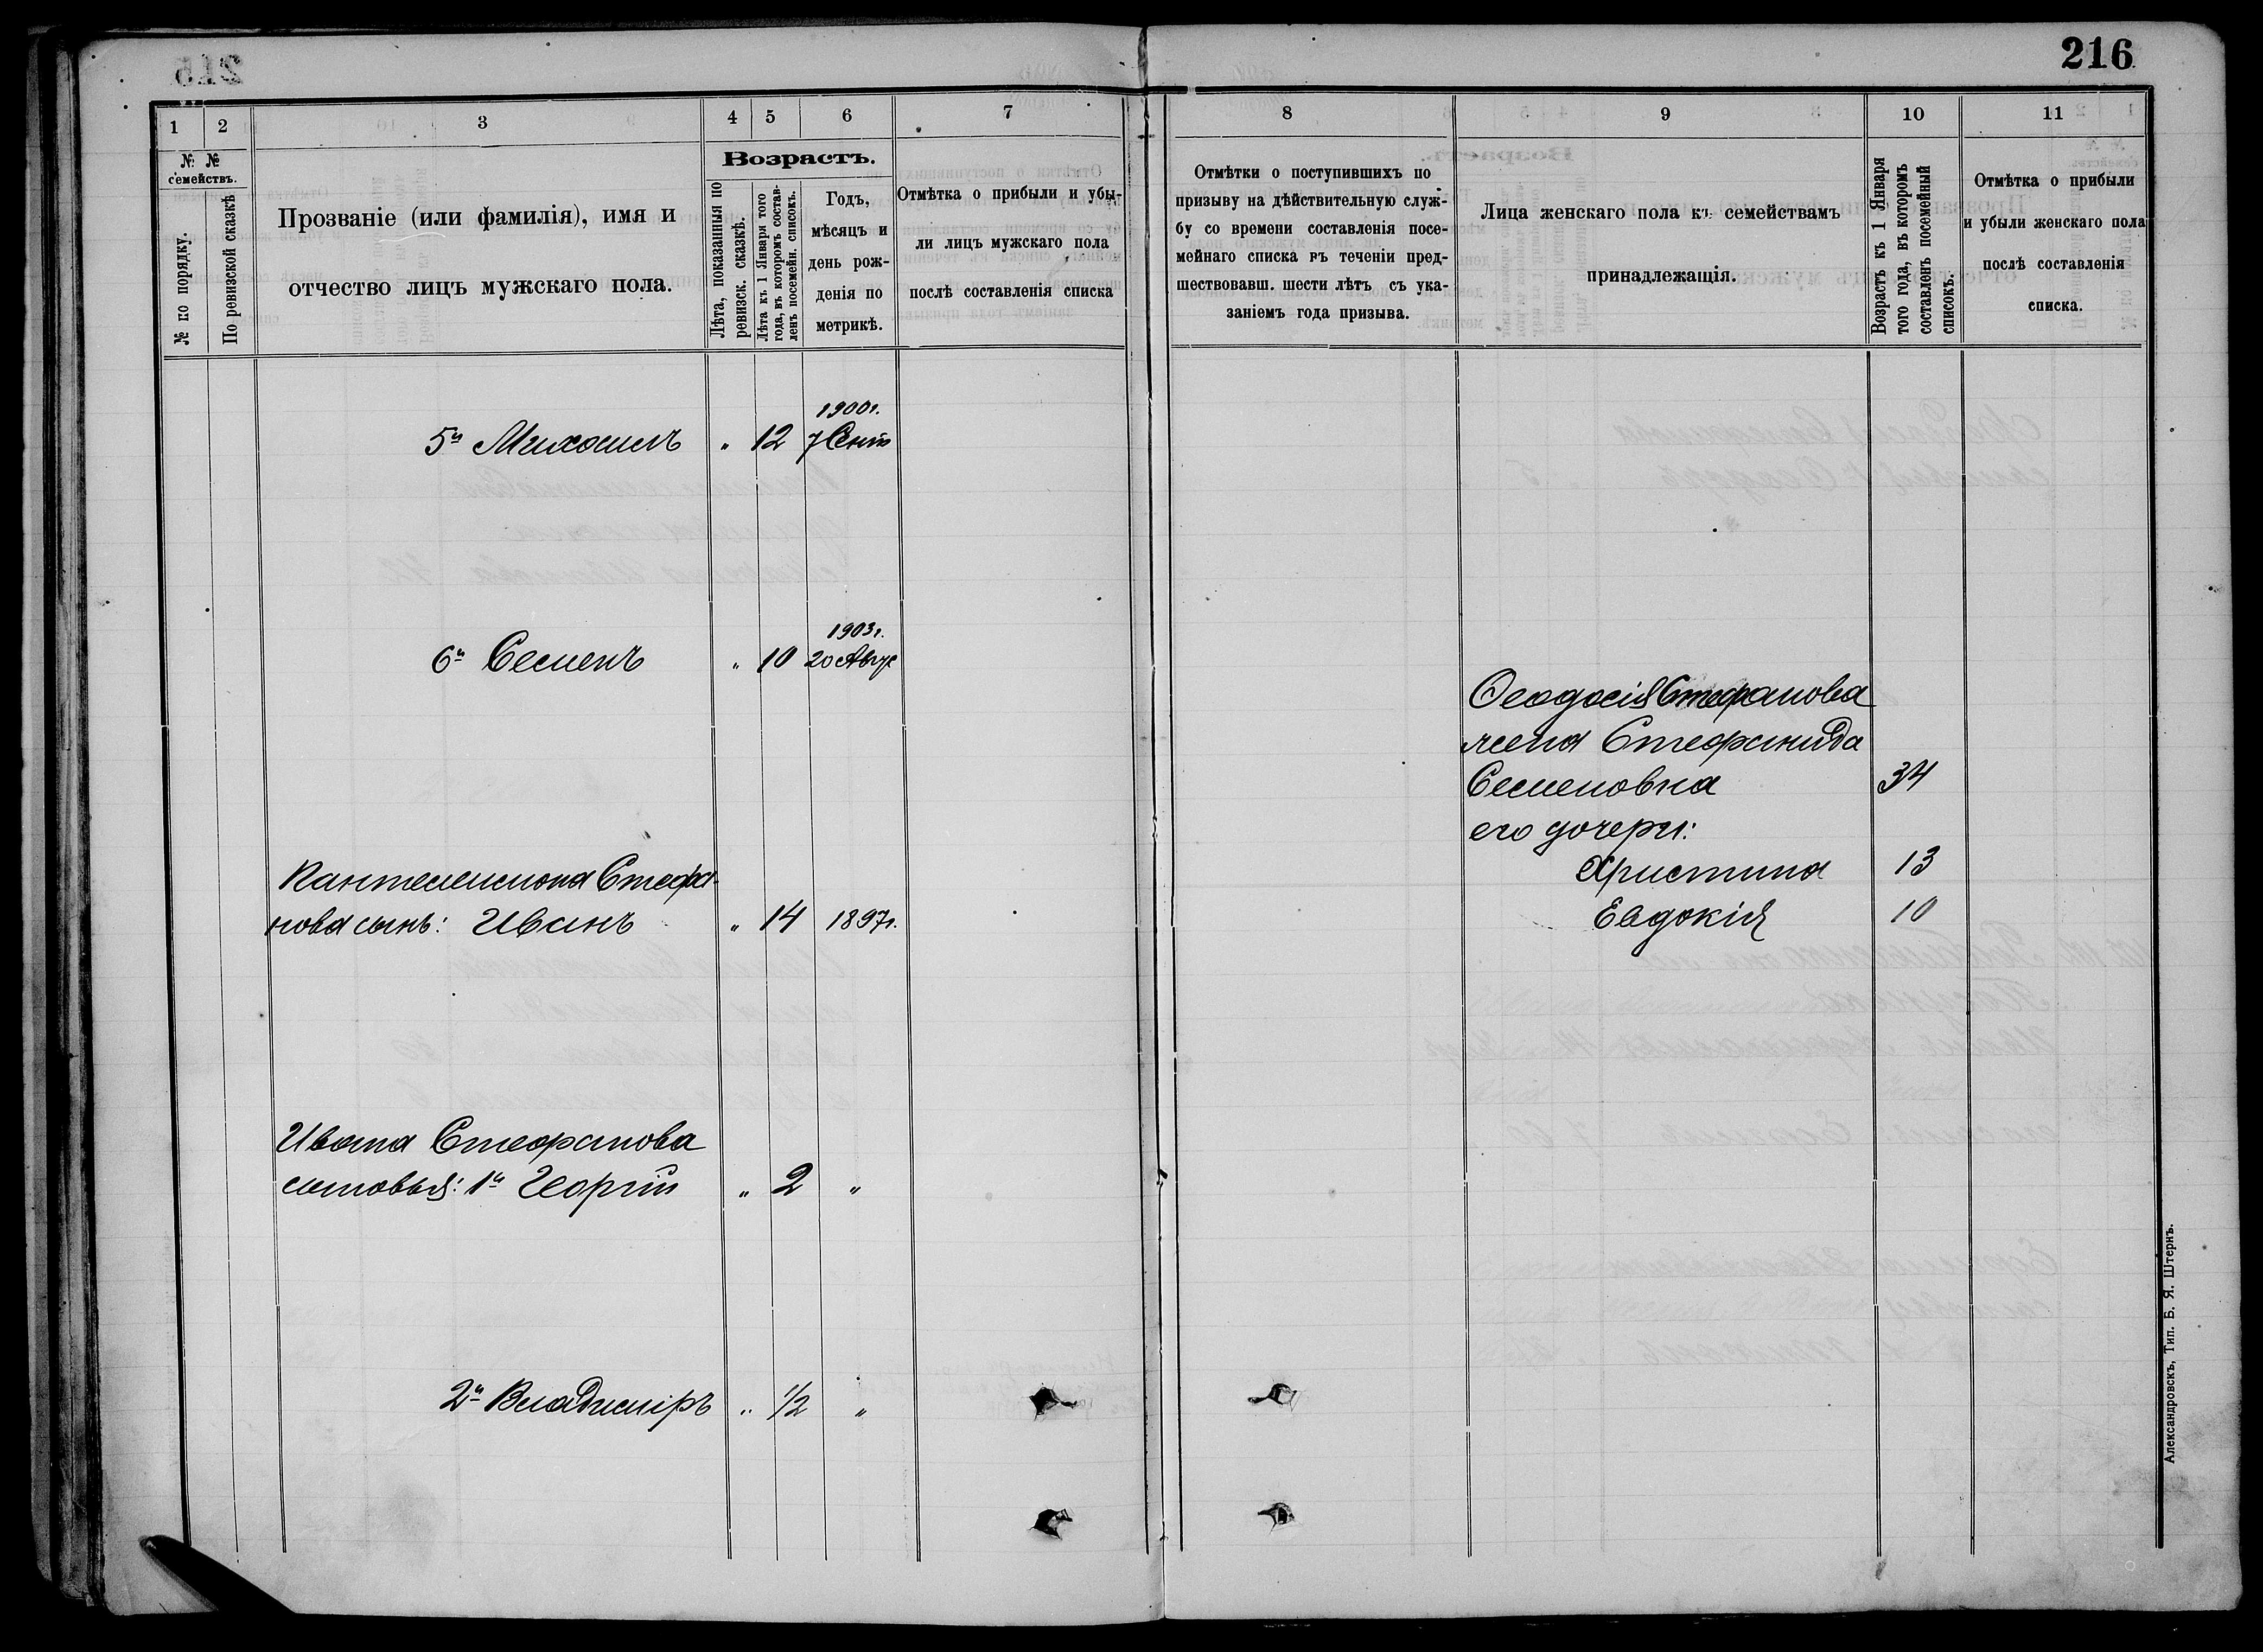 216
1 2 3 4 5 6 7
№ № семействъ.
№ по порядку.
По ревизской сказкѣ
Прозваніе (или фамилія), имя и
отчество лицъ мужскаго пола.
Возрастъ.
Лѣта, показанныя по
ревизск. сказкѣ.
Лѣта къ 1 Января того
года, въ которомъ состав-
ленъ посемейн. списокъ.
Годъ,
мѣсяцъ и
день рож-
денія по
метрикѣ.
Отмѣтка о прибыли и убы-
ли лицъ мужскаго пола
послѣ составленія списка
1900г.
5й Михаилъ " 12 7 Сент
1903г.
6й Семенъ " 10 20 Авгус
Пантелеимона Стефа-
нова сынъ: Иванъ " 14 1897г.
Ивана Стефанова
сыновья: 1й Георгій " 2 "
2й Владиміръ " 1/2 "
8 9 10 11
Отмѣтки о поступившихъ по
призыву на дѣйствительную служ-
бу со времени составленія посе-
мейнаго списка въ теченіи пред-
шествовавш. шести лѣтъ съ ука-
заніемъ года призыва.
Лица женскаго пола къ семействамъ
принадлежащія.
Возрастъ къ 1 Января
того года, въ которомъ
составленъ посемейный
списокъ.
Отмѣтка о прибыли
и убыли женскаго пола
послѣ составленія
списка.
Ѳеодосія Стефанова
жена Стефанида
Семеновна 34
его дочери:
Христина 13
Евдокія 10
Александровскъ, Тип. Б. Я. Штернъ.